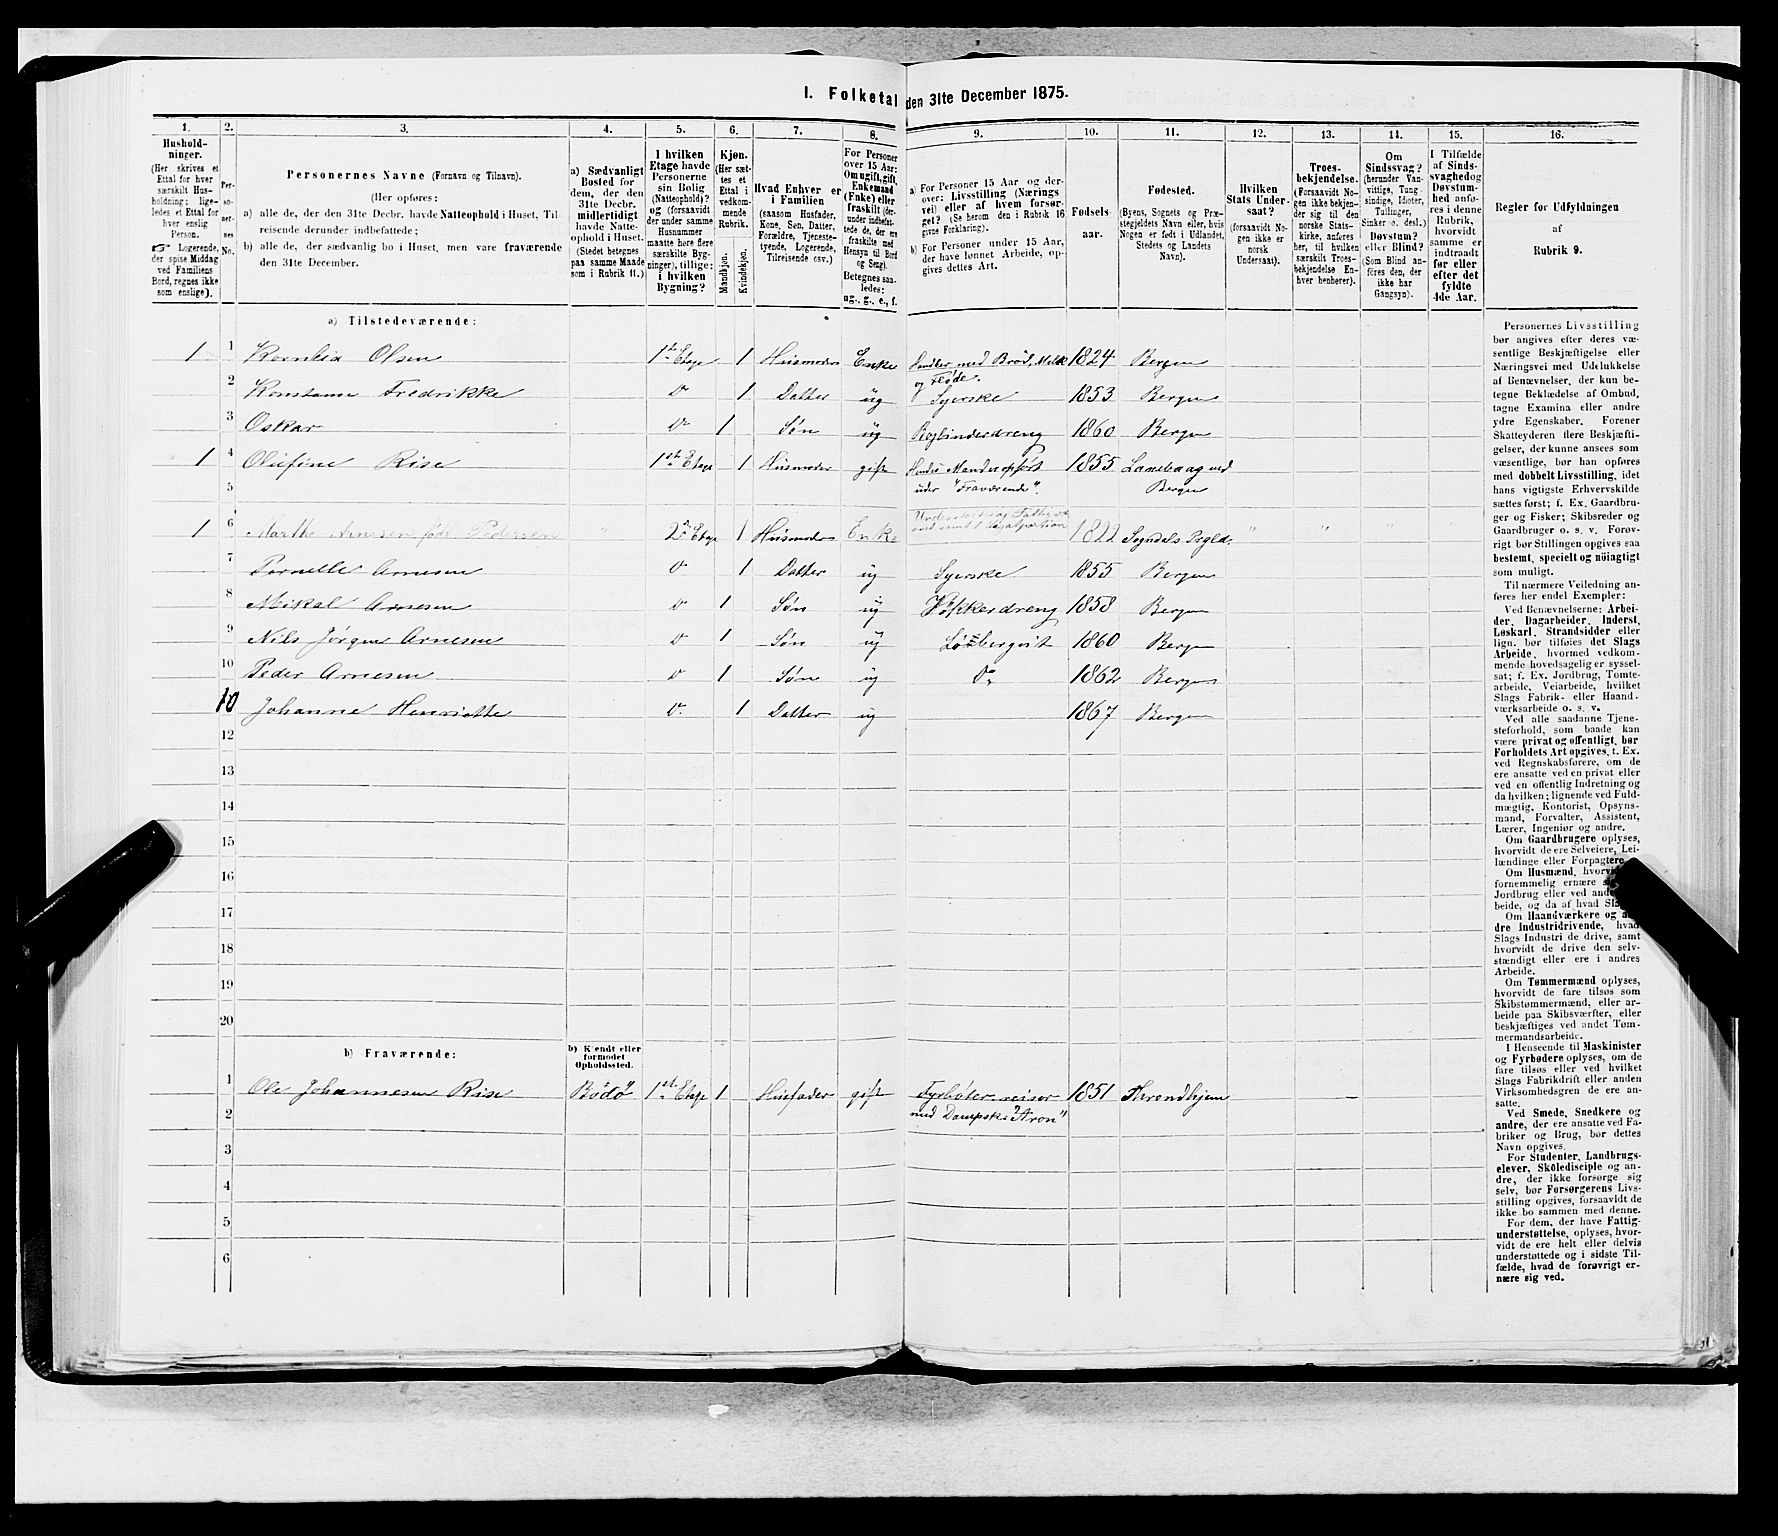 I. Folketal den 31te December 1875.
1. 2. 3. 4. 5. 6. 7. 8. 9. 10. 11. 12. 13. 14. 15. 16.
Hushold-
ninger.
(Her skrives et
Ettal for hver
særskilt Hus-
holdning; lige-
ledes et Ettal for
hver enslig
Person.
☞ Logerende,
der spise Middag
ved Familiens
Bord, regnes ikke
som enslige).
Per-
so-
ner-
nes
No.
Personernes Navne (Fornavn og Tilnavn).
(Her opføres:
a) alle de, der den 31te Decbr. havde Natteophold i Huset, Til-
reisende derunder indbefattede;
b) alle de, der sædvanlig bo i Huset, men vare fraværende
den 31te December.
a) Sædvanligt
Bosted for
dem, der den
31te Decbr.
midlertidigt
havde Natte-
ophold i Huset.
(Stedet betegnes
paa samme Maade
som i Rubrik 11.)
I hvilken
Etage havde
Personerne
sin Bolig
(Natteophold)?
og (forsaavidt
der under samme
Husnummer
maatte høre flere
særskilte Byg-
ninger), tillige:
i hvilken
Bygning?
Kjøn.
(Her sæt-
tes et
Ettal i
vedkom-
mende
Rubrik.
Mandkjøn.
Kvindekjøn.
Hvad Enhver er
i Familien
(saasom Husfader,
Kone, Søn, Datter,
Forældre, Tjeneste-
tyende, Logerende,
Tilreisende osv.)
For Personer
over 15 Aar:
Om ugift, gift,
Enkemand
(Enke) eller
fraskilt (der-
under indbefat-
tede de, der ere
fraskilte med
Hensyn til Bord
og Seng).
Betegnes saa-
ledes:
ug., g., e., f.
a) For Personer 15 Aar og der-
over: Livsstilling (Nærings
vei) eller af hvem forsør-
get? (Se herom den i Rubrik 16
givne Forklaring).
b) For Personer under 15 Aar,
der have lønnet Arbeide, op-
gives dettes Art.
Fødsels-
aar.
Fødested.
(Byens, Sognets og Præ-
stegjeldets Navn eller, hvis
Nogen er født i Udlandet,
Stedets og Landets
Navn).
Hvilken
Stats Under-
saat?
(forsaavidt No-
gen ikke er
norsk
Undersaat).
Troes-
bekjendelse.
(Forsaavidt No-
gen ikke bekjen-
der sig til den
norske Stats-
kirke, anføres
her, til hvilken
særskilt Troes-
bekjendelse En-
hver henhører).
Om
Sindssvag?
(herunder Van-
vittige, Tung-
sindige, Idioter,
Tullinger,
Sinker o. desl.)
Døvstum?
eller Blind?
(Som Blind an-
føres den, der
ikke har
Gangsyn).
I Tilfælde
af Sinds-
svaghed og
Døvstum-
hed anfø-
res i denne
Rubrik,
hvorvidt
samme er
indtraadt
før eller
efter det
fyldte
4de Aar.
Regler for Udfyldningen
af
Rubrik 9.
a) Tilstedeværende:
1 1 Kornelia Olsen 1ste Etage 1 Husmoder Enke Handler med Brød, Melk 1824 Bergen
og Fløde.
2 Konstanse Fredrikke Do 1 Datter ug Syerske 1853 Bergen
3 Oskar Do 1 Søn ug Bogbinderdreng 1860 Bergen
1 4 Olufine Rise 1ste Etage 1 Husmoder gift Hendes Mand er opført 1855 Lanehaag ved
5 under "Fraværende". Bergen
1 6 Marthe Arnesen født Pedersen " 2den Etage 1 Husmoder Enke 1822 Sogndals Prgld. " " "
7 Pernelle Arnesen Do 1 Datter ug Syerske 1855 Bergen
8 Mikal Arnesen Do 1 Søn ug Bøkkerdreng 1858 Bergen
9 Nils Jørgen Arnesen Do 1 Søn ug 1860 Bergen
10 Peder Arnesen Do 1 Søn ug Do 1862 Bergen
10 Johanne Henriette Do 1 Datter ug 1867 Bergen
12
13
14
15
16
17
18
19
20
b) Fraværende:
b) Kjendt eller
formodet
Opholdssted.
1 Ole Johannesen Rise Bödö 1ste Etage 1 Husfader gift Fyrbøter reiser 1851 Throndhjem
2 med Dampsk. "Aron"
3
4
5
6
Personernes Livsstilling
bør angives efter deres væ-
sentlige Beskjæftigelse eller
Næringsvei med Udelukkelse
af Benævnelser, der kun be-
tegne Beklædelse af Ombud,
tagne Examina eller andre
ydre Egenskaber. Forener
Skatteyderen flere Beskjæfti-
gelser, der kunne ansees som
væsentlige, bør han opføres
med dobbelt Livsstilling, idet
hans vigtigste Erhvervskilde
sættes først; f. Ex. Gaardbru-
ger og Fisker; Skibsreder og
Gaardbruger o. s. v. Forøv-
rigt bør Stillingen opgives saa
bestemt, specielt og nöiagtigt
som muligt.
Til nærmere Veiledning an-
føres her endel Exempler:
Ved Benævnelserne: Arbei-
der, Dagarbeider, Inderst,
Løskarl, Strandsidder eller
lign. bør tilføies det Slags
Arbeide, hvormed vedkom-
mende hovedsagelig er syssel-
sat; f. Ex. Jordbrug, Tomte-
arbeide, Veiarbeide, hvilket
Slags Fabrik- eller Haand-
værksarbeide o. s. v.
Ved alle saadanne Tjene-
steforhold, som baade kan
være privat og offentligt, bør
Forholdets Art opgives, t. Ex.
ved Regnskabsførere, om de
ere ansatte ved en privat eller
ved en offentlig Indretning og
da hvilken; lignende ved Fuld-
mægtig, Kontorist, Opsyns-
mand, Forvalter, Assistent,
Lærer, Ingeniør og andre.
Om Gaardbrugere oplyses,
hvorvidt de ere Selveiere, Lei-
lændinge eller Forpagtere
Om Husmænd, hvorvidt
fornemmelig ernære s
Jordbrug eller ved ande
beide, og da af hvad Slag
Om Haandværkere og an-
dre Industridrivende, hvad
Slags Industri de drive, samt
hvorvidt de drive den selv-
stændigt eller ere i andres
Arbeide.
Om Tømmermænd oplyses,
hvorvidt de fare tilsøs som
Skibstømmermænd, eller ar-
beide paa Skibsværfter, eller
beskjæftiges ved andet Tøm-
mermandsarbeide.
I Henseende til Maskinister
og Fyrbødere oplyses, om de
fare tilsøs eller ved hvilket
Slags Fabrikdrift eller anden
Virksomhedsgren de ere an-
satte.
Ved Smede, Snedkere og
andre, der ere ansatte ved Fa-
briker og Brug, bør dettes
Navn opgives.
For Studenter, Landbrugs-
elever, Skôledisciple og an-
dre, der ikke forsørge sig
selv, bør Forsørgerens Livs-
stilling opgives, forsaavidt de
ikke bo sammen med denne.
For dem, der have Fattig-
understøttelse, oplyses, hvor-
vidt de ere helt eller delvis
understøttede og i sidste Til-
fælde, hvad de forøvrigt er-
nære sig ved.